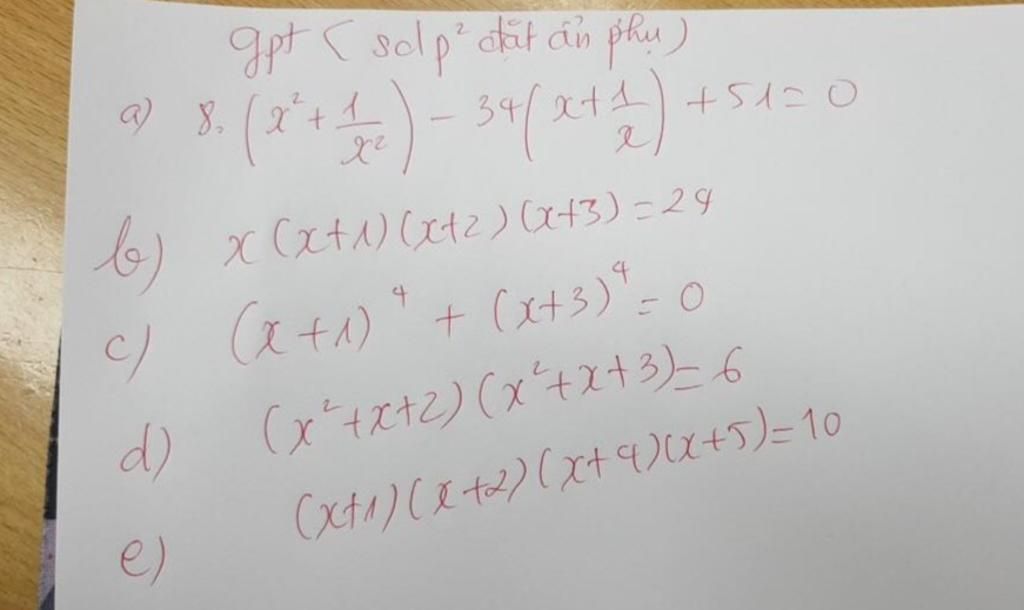 gpt ( sdp² đặt ẩn phụ )
a) 8. (x² + 1/x²) - 34(x + 1/x) + 51 = 0
b) x(x+1)(x+2)(x+3) = 24
c) (x+1)⁴ + (x+3)⁴ = 0
d) (x²+x+2)(x²+x+3) = 6
e) (x+1)(x+2)(x+4)(x+5) = 10